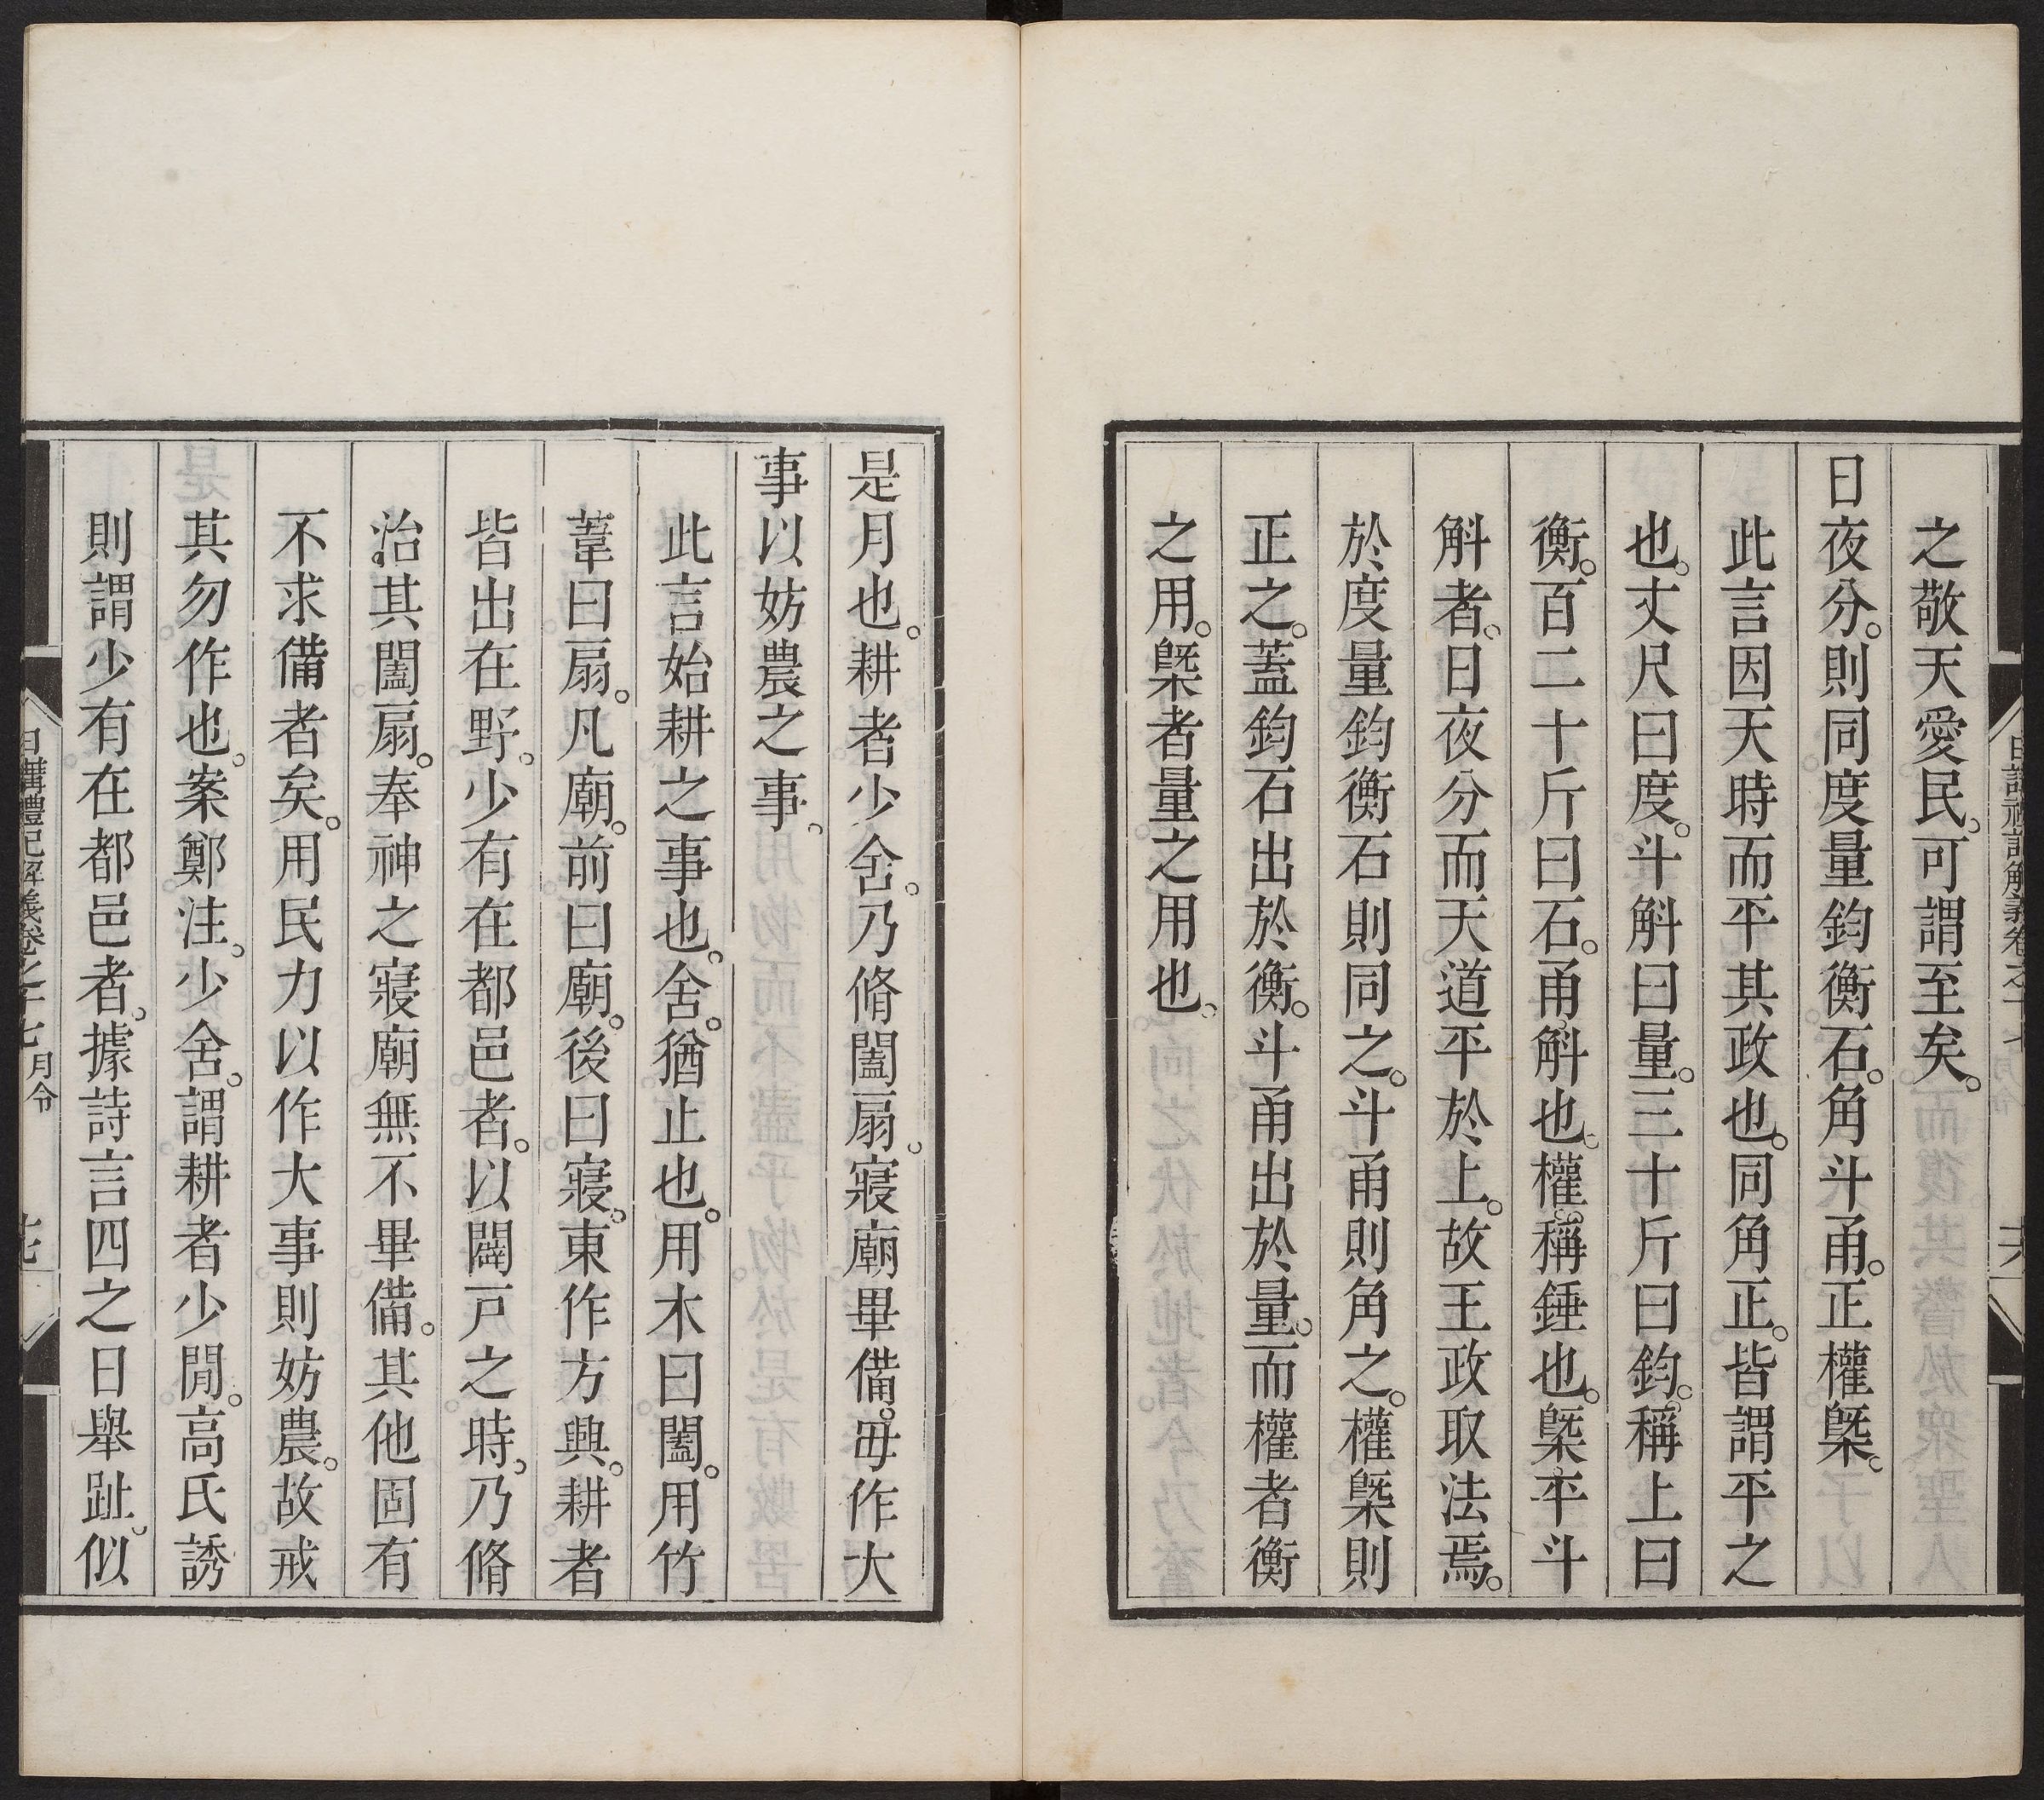 之敬天愛民。可謂至矣。
日夜分。則同度量鈞衡石。角斗甬。正權槩。
此言因天時而平其政也。同角正。皆謂平之
也。丈尺曰度。斗斛曰量。三十斤曰鈞。稱上曰
衡。百二十斤曰石。甬。斛也。權。稱錘也。槩。平斗
斛者。日夜分而天道平於上。故王政取法焉。
於度量鈞衡石則同之。斗甬則角之。權槩則
正之。蓋鈞石出於衡。斗甬出於量。而權者衡
之用。槩者量之用也。
是月也。耕者少舍。乃脩闔扇。寢廟畢備。毋作大
事以妨農之事。
此言始耕之事也。舍。猶止也。用木曰闔。用竹
葦曰扇。凡廟。前曰廟。後曰寢。東作方興。耕者
皆出在野。少有在都邑者。以闢戸之時。乃脩
治其闔扇。奉神之寢廟無不畢備。其他固有
不求備者矣。用民力以作大事則妨農。故戒
其勿作也。案鄭注。少舍。謂耕者少閒。高氏誘
則謂少有在都邑者。據詩言四之日舉趾。似
日講禮記解義卷之十七 月令 十七